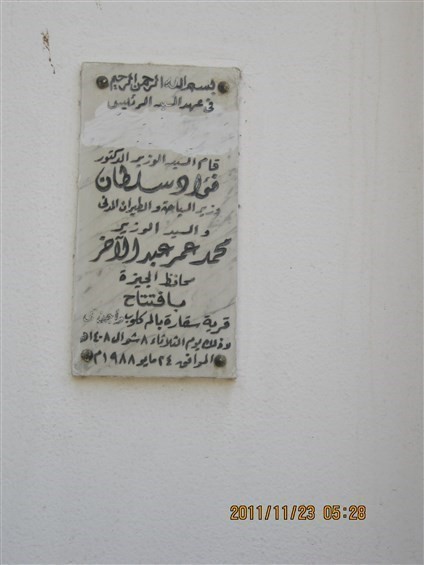 بسم الله الرحمن الرحيم
فى عهد السيد الرئيس
قام السيد الوزير الدكتور
فؤاد سلطان
وزير السياحة والطيران المدنى
والسيد الوزير
محمد عمر عبد الآخر
محافظ الجيزة
بافتتاح
قرية سقارة بالم كلوب
وذلك يوم الثلاثاء ٨ شوال ١٤٠٨ه
الموافق ٢٤ مايو ١٩٨٨م
2011/11/23 05:28